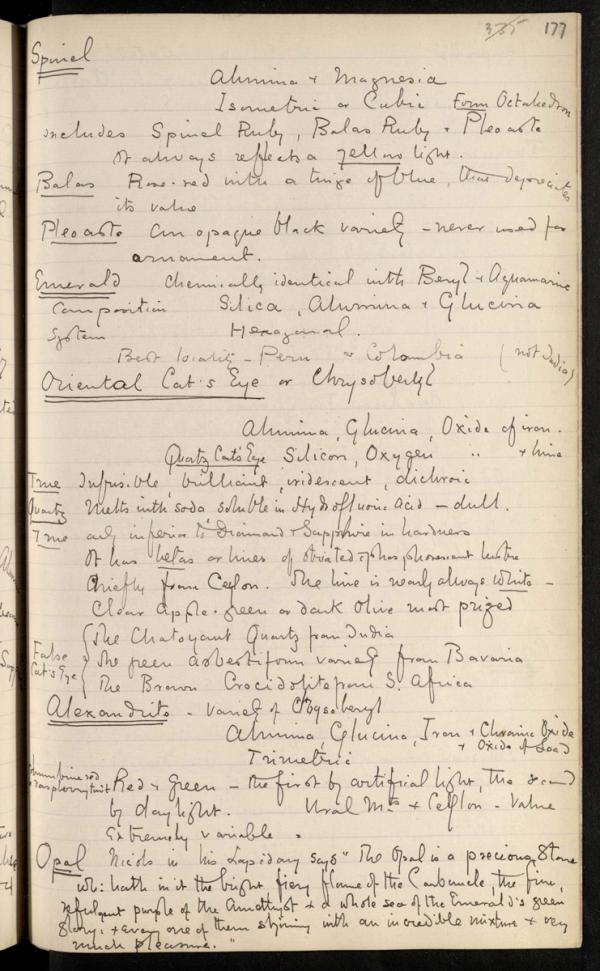 335 177
Spinel
Alumina + Magnesia
Isometric or Cubic Form Octahedron
includes Spinel Ruby, Balas Ruby + Pleoaste
It always reflects a yellow light.
Balas Rose-red with a tinge of blue, that depreciates
its value
Pleoaste An opaque black variety - never used for
ornament.
Emerald Chemically identical with Beryl + Aquamarine
Composition Silica, Alumina + Glucina
System Hexagonal.
Best locality - Peru or Colombia (not India)
Oriental Cat's Eye or Chrysoberyl
Alumina, Glucina, Oxide of iron.
Quartz Cat's Eye Silicon, Oxygen " + lime
True Infusible, brilliant, iridescent, dichroic
Quartz Melts with soda soluble in Hydrofluoric Acid - dull.
True only inferior to Diamond + Sapphire in hardness
It has or lines of phosphorescent lustre
Chiefly from Ceylon. The line is nearly always white -
Clear apple-green or dark olive most prized
False Cat's Eye
The Chatoyant Quartz from India
The green asbestiform variety from Bavaria
The Brown Crocidolite from S. Africa
Alexandrite - Variety of Chrysoberyl
Alumina, Glucina, Iron + Chromic Oxide
+ Oxide of Lead
Trimetric
Columbine red
+ raspberry tint
Red + green - the first by artificial light, the second
by daylight. Ural Mts + Ceylon - Value
Extremely variable.
Opal Nicols in his Lapidary says "The Opal is a precious Stone
wh: hath in it the bright fiery flame of the Carbuncle, the fine,
refulgent purple of the Amethyst + a whole sea of the Emerald's green
glory: + every one of them shining with an incredible mixture + very
much pleasure."